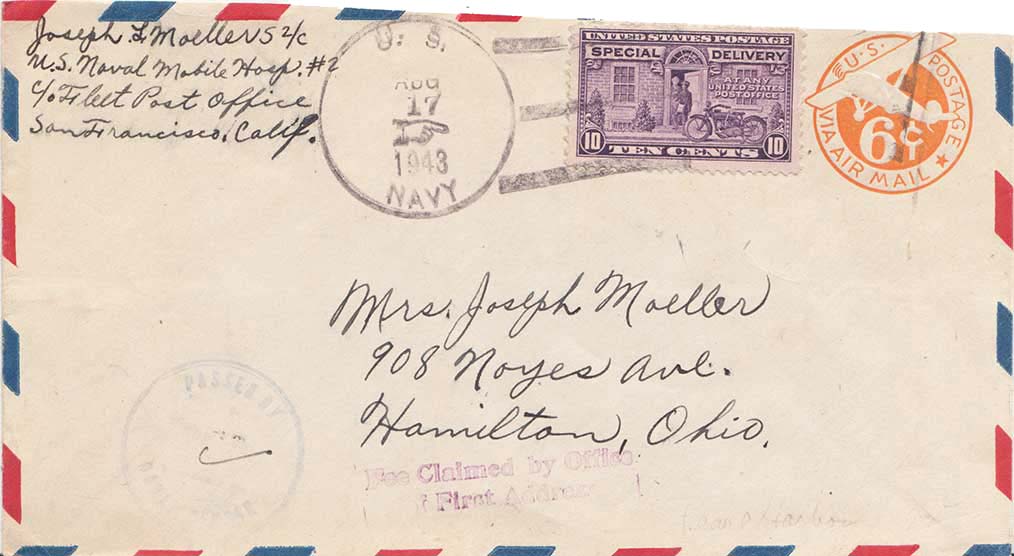 Joseph L Moeller S 2/c
U.S. Naval Mobile Hosp. #2
c/o Fleet Post Office
San Francisco, Calif.
U. S.
AUG
17
1943
NAVY
UNITED STATES POSTAGE
SPECIAL DELIVERY
AT ANY
UNITED STATES
POST OFFICE
10 TEN CENTS 10
U.S. POSTAGE
6¢
VIA AIR MAIL
Mrs. Joseph Moeller
908 Noyes Ave.
Hamilton, Ohio.
PASSED BY
Fee Claimed by Office
First Address